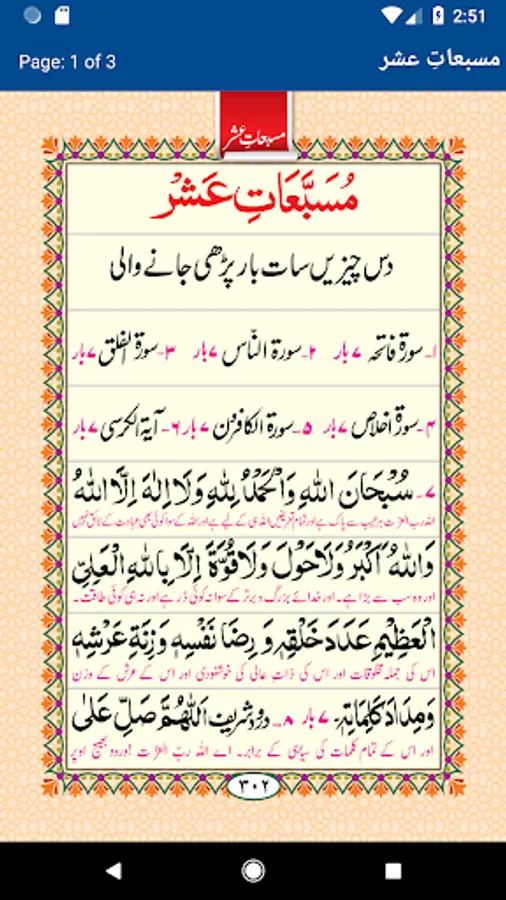 2:51
Page: 1 of 3
مسبعاتِ عشر
مسبعاتِ عشر
مُسَبَّعَاتِ عَشْر
دس چیزیں سات بار پڑھی جانے والی
۱۔سورۃ فاتحہ ۷ بار ۲۔سورۃ النّاس ۷بار ۳۔سورۃ الفلق ۷بار
۴۔سورۃ اخلاص ۷بار ۵۔سورۃ الکافرٰن ۷بار ۶۔آیۃ الکرسی ۷بار
۷۔ سُبْحَانَ اللهِ وَالْحَمْدُ لِلّٰهِ وَلَا اِلٰهَ اِلَّا اللهُ
اللہ رب العزّت ہر عیب سے پاک ہے اور تمام تعریفیں اللہ ہی کے لیے ہے اور اللہ کے سوا کوئی بھی عبادت کے لائق نہیں
وَاللهُ اَكْبَرُ وَلَا حَوْلَ وَلَا قُوَّةَ اِلَّا بِاللهِ الْعَلِيِّ
اور وہ سب سے بڑا ہے۔ اور خدائے بزرگ و برتر کے سوا نہ کوئی ڈر ہے اور نہ ہی کوئی طاقت۔
الْعَظِيْمِ عَدَدَ خَلْقِهٖ وَ رِضَا نَفْسِهٖ وَزِنَةِ عَرْشِهٖ
اس کی جملہ مخلوقات اور اس کی ذاتِ عالی کی خوشنودی اور اس کے عرش کے وزن
وَمِدَادَ كَلِمَاتِهٖ۔ ۷ بار ۸۔ درود شریف اَللّٰهُمَّ صَلِّ عَلٰى
اور اس کے تمام کلمات کی سیاہی کے برابر۔ اے اللہ ربّ العزّت! درود بھیج اوپر
۳۰۲